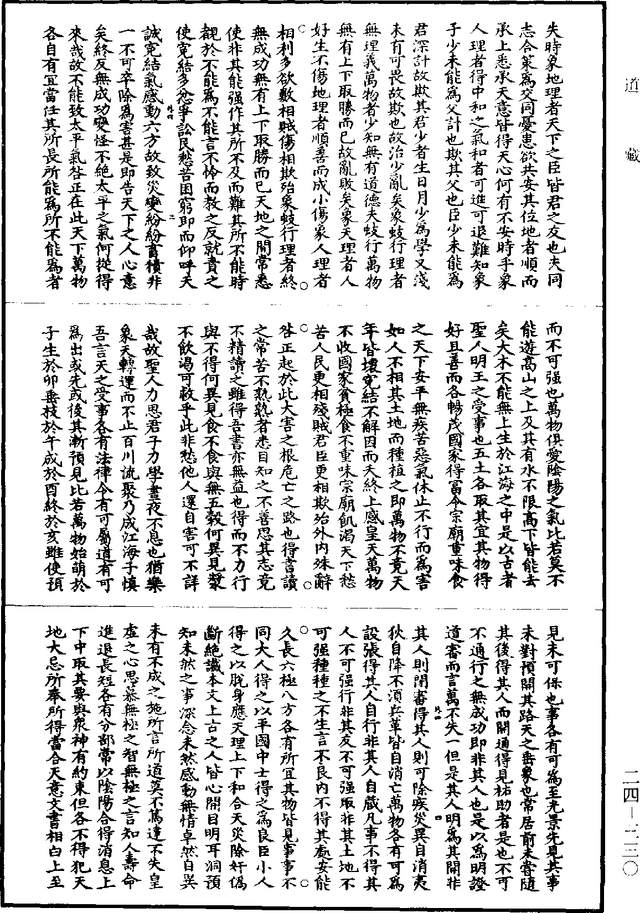 道藏
失時象地理者天下之臣皆君之友也夫同
志合策爲交同憂患欲共安其位地者順而
承上悉承天意皆得天心何有不安時乎象
人理者得中和之氣和者可進可退難知象
子少未能爲父計也欺其父也臣少未能爲
君深計故欺其君少者生日月少爲學又淺
未有可畏故欺也故治少亂矣象蚑行理者
無理義萬物者少知無有道德夫蚑行萬物
無有上下取勝而已故亂敗矣象天理者人
好生不傷地理者順善而成小傷象人理者
相利多欲數相賊傷相欺殆象蚑行理者終
無成功無有上下取勝而已天地之間常悉
使非其能強作其所不及而難其所不能時
覩於不能爲不能言不怜而教之反就責之
使寃結多忿爭訟民愁苦困窮即而仰呼天
誠寃結氣感動六方故致災變紛紛畜積非
一不可卒除爲害甚是即告天下之人心意
矣終反無成功變怪不絶太平之氣何從得
來哉故不能致太平氣咎正在此天下萬物
各自有宜當任其所長所能爲所不能爲者
而不可強也萬物俱愛陰陽之氣比若莫不
能遊高山之上及其有水不限高下皆能去
矣大木不能無上生於江海之中是以古者
聖人明王之受事也五土各取其宜其物得
好且善而各暢茂國家得富令宗廟重味食
之天下安平無疾苦惡氣休止不行而爲害
如人不相其土地而種植之即萬物不竟天
年皆壞寃結不解因而夭終上感皇天萬物
不收國家貧極食不重味宗廟飢渴天下愁
苦人民更相殘賊君臣更相欺紿外内殊辭
咎正起於此大害之根危亡之路也得吾讀
之常苦不熟熟者悉自知之不善思其志竟
不精讀之雖得吾書亦無益也得而不力行
與不得何異見食不食與無五穀何異見漿
不飲渴可救乎此非愁他人還自害可不詳
哉故聖人力思君子力學晝夜不息也猶樂
象天轉運而不止百川流聚乃成江海子慎
吾言天之受事各有法律令有可屬道有可
爲出或先或後其漸預見比若萬物始萌於
子生於卯垂枝於午成於酉終於亥雖使預
見未可保也事各有可爲至光景先見其事
未對預開其路天之垂象也常居前未嘗隨
其後得其人而開通得見祐助者是也不可
不通行之無成功即非其人也是以爲明證
道審而言萬不失一但是其人明爲其開非
其人則閉審得其人則可除疾災異自消夷
狄自降不須兵革皆自消亡萬物各有可爲
設張得其人自行非其人自藏凡事不得其
人不可強行非其友不可強服非其土地不
可強種種之不生言不良内不得其處安能
久長六極八方各有所宜其物皆見事事不
同大人得之以平國中士得之爲良臣小人
得之以脱身應天理上下和合天災除奸僞
斷絶讖本文上古之人皆心開目明耳洞預
知未然之事深念未然感動無情卓然自異
未有不成之施所言所道莫不篤達不失皇
虚之心思慕無極之智無極之言知人壽命
進退長短各有分部常以陰陽合得消息上
下中取其要與衆神有約束但各不得犯天
地大忌所奉所得當合天意文書相白上至
二四—二三〇